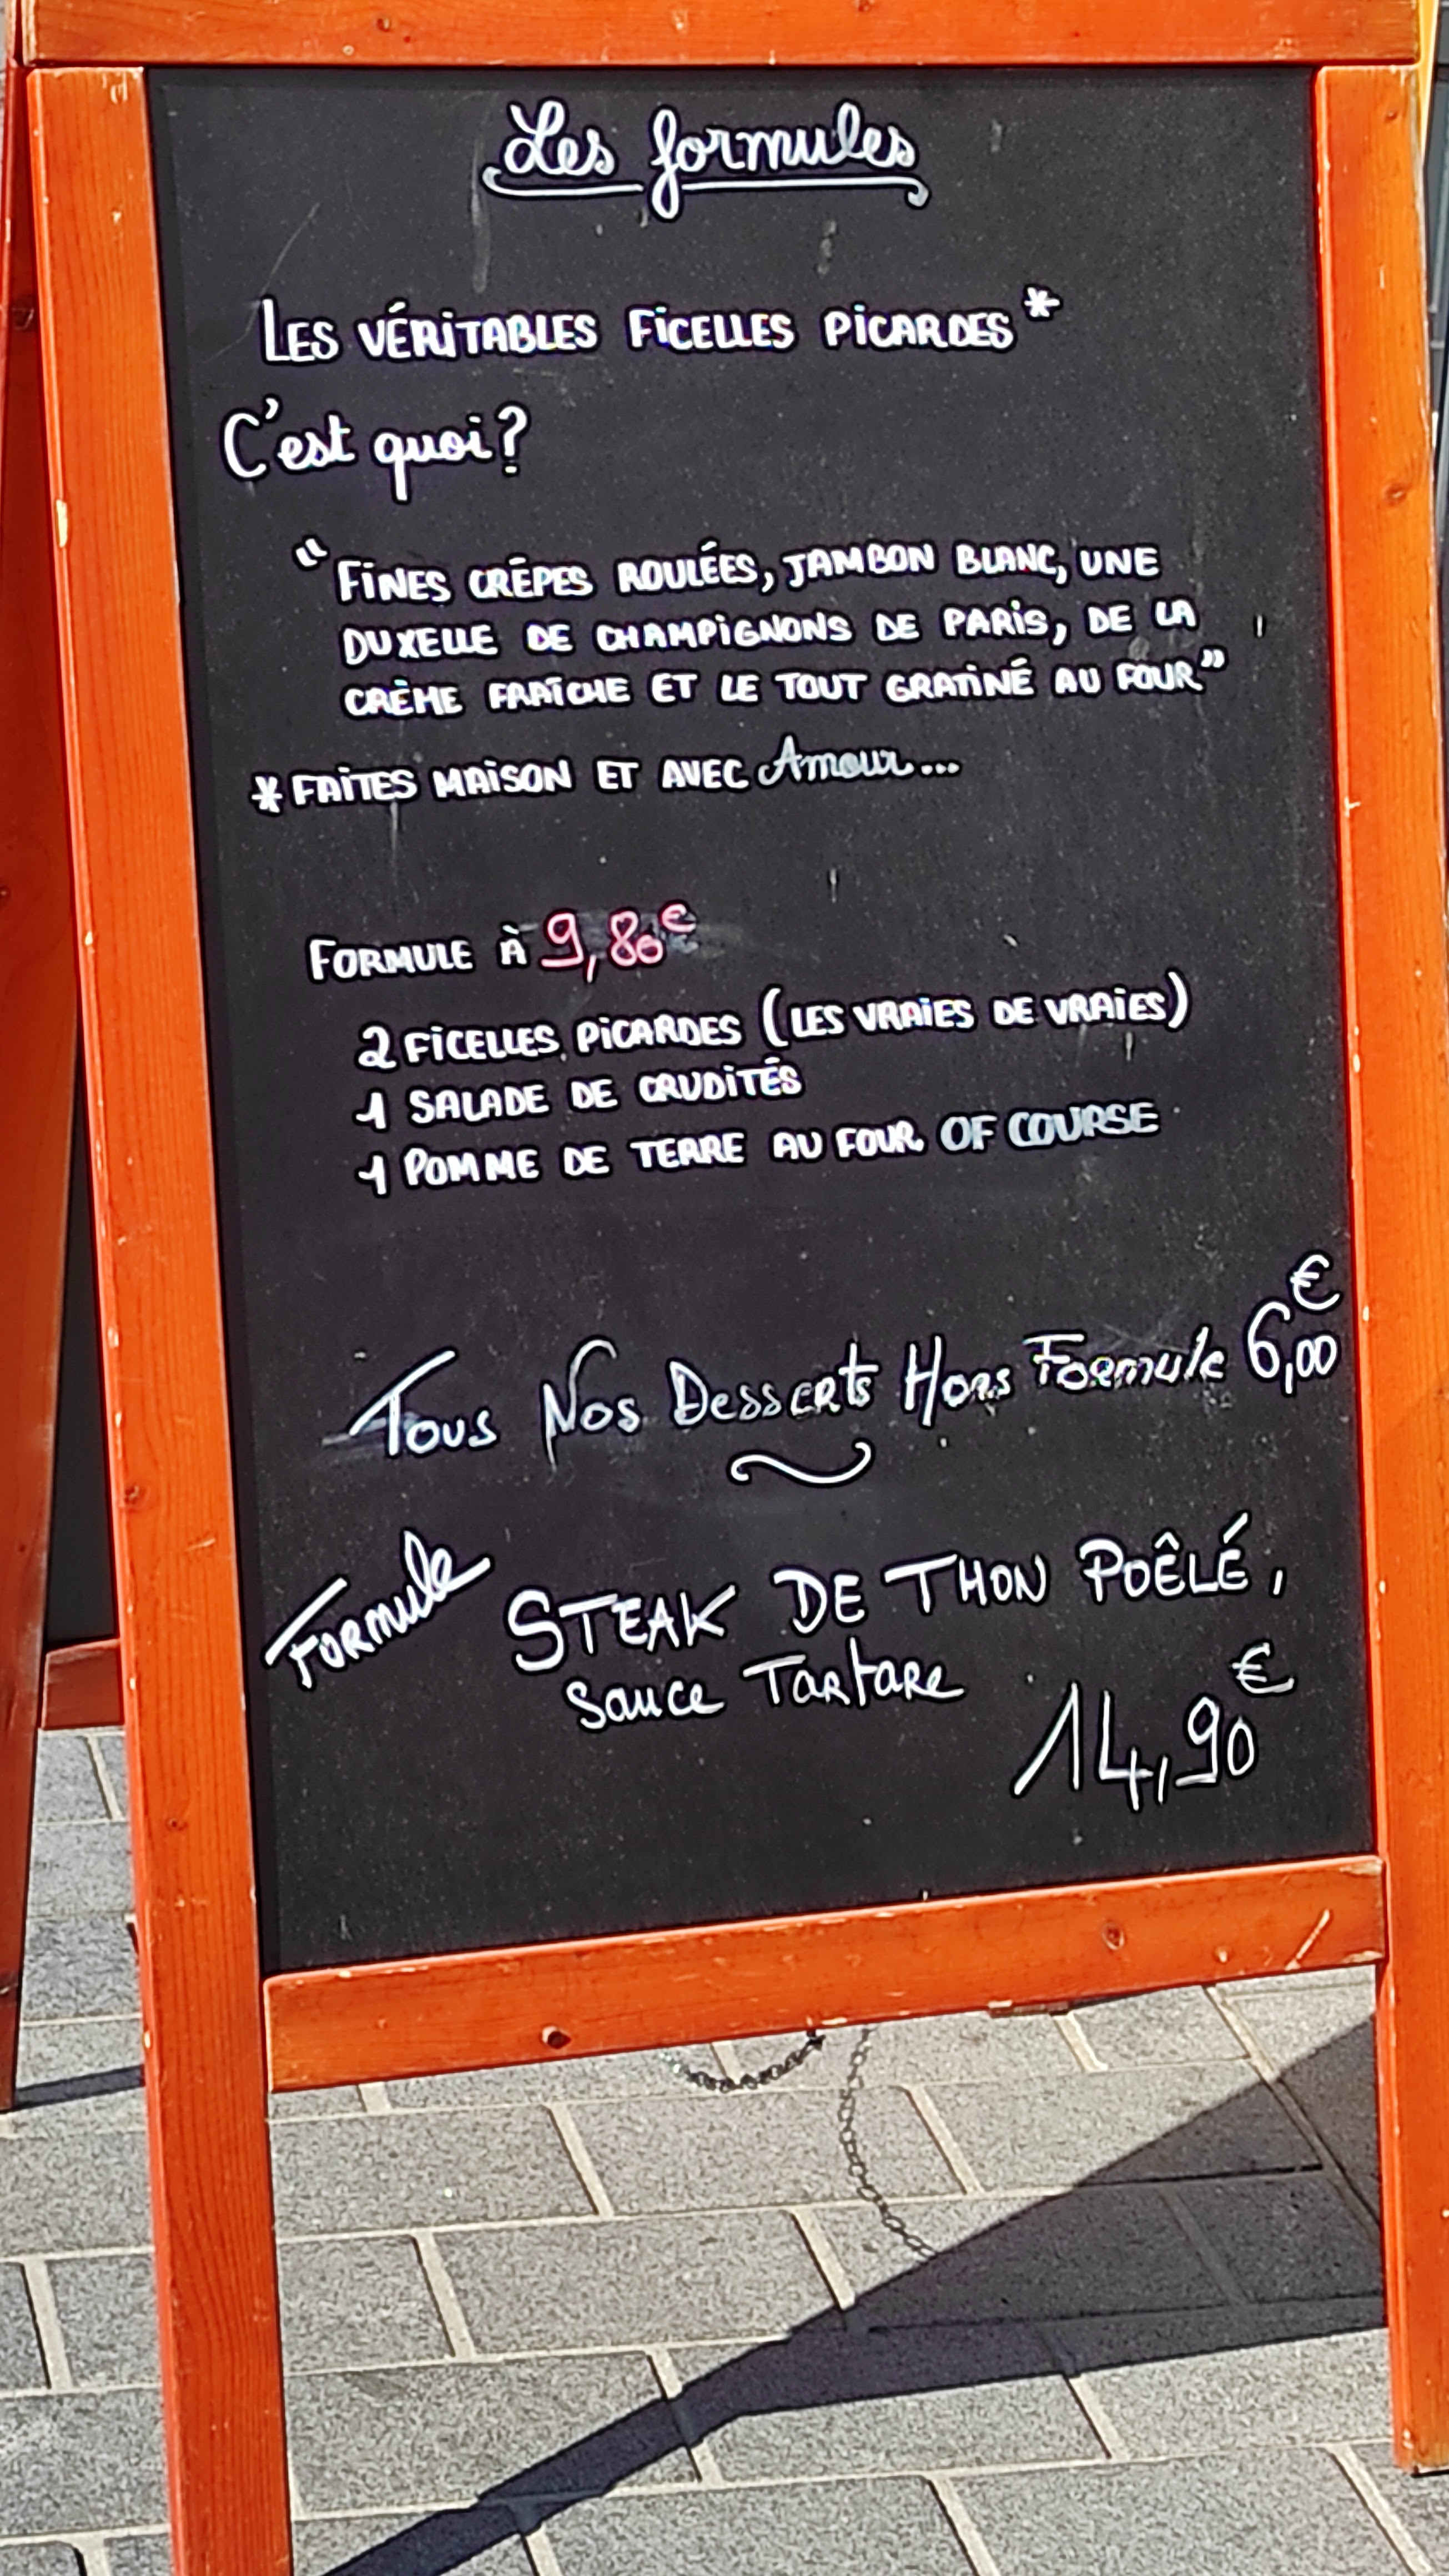 Les formules
LES VÉRITABLES FICELLES PICARDES*
C'est quoi?
"FINES CRÊPES ROULÉES, JAMBON BLANC, UNE
DUXELLE DE CHAMPIGNONS DE PARIS, DE LA
CRÈME FRAÎCHE ET LE TOUT GRATINÉ AU FOUR"
*FAITES MAISON ET AVEC Amour...
FORMULE À 9,80€
2 FICELLES PICARDES (LES VRAIES DE VRAIES)
1 SALADE DE CRUDITÉS
1 POMME DE TERRE AU FOUR OF COURSE
Tous Nos Desserts Hors Formule 6,00€
Formule STEAK DE THON POÊLÉ,
Sauce Tartare
14,90€